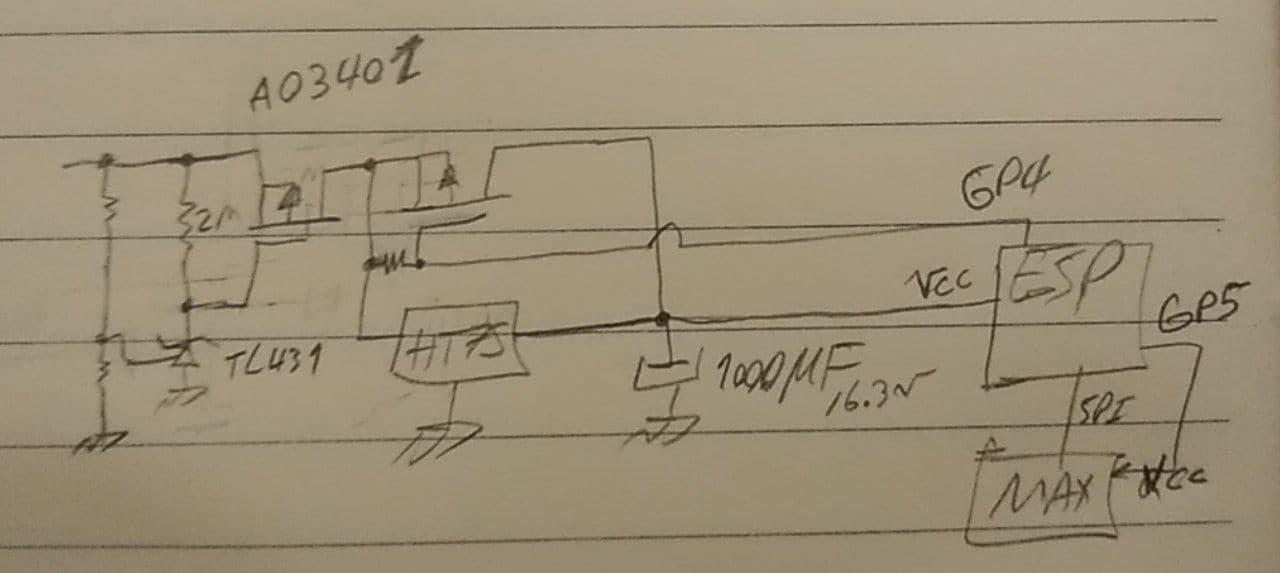 AO3401
GP4
2M
VCC
ESP
GP5
HT75
TL431
1000µF
16.3V
SPI
MAX
Vcc